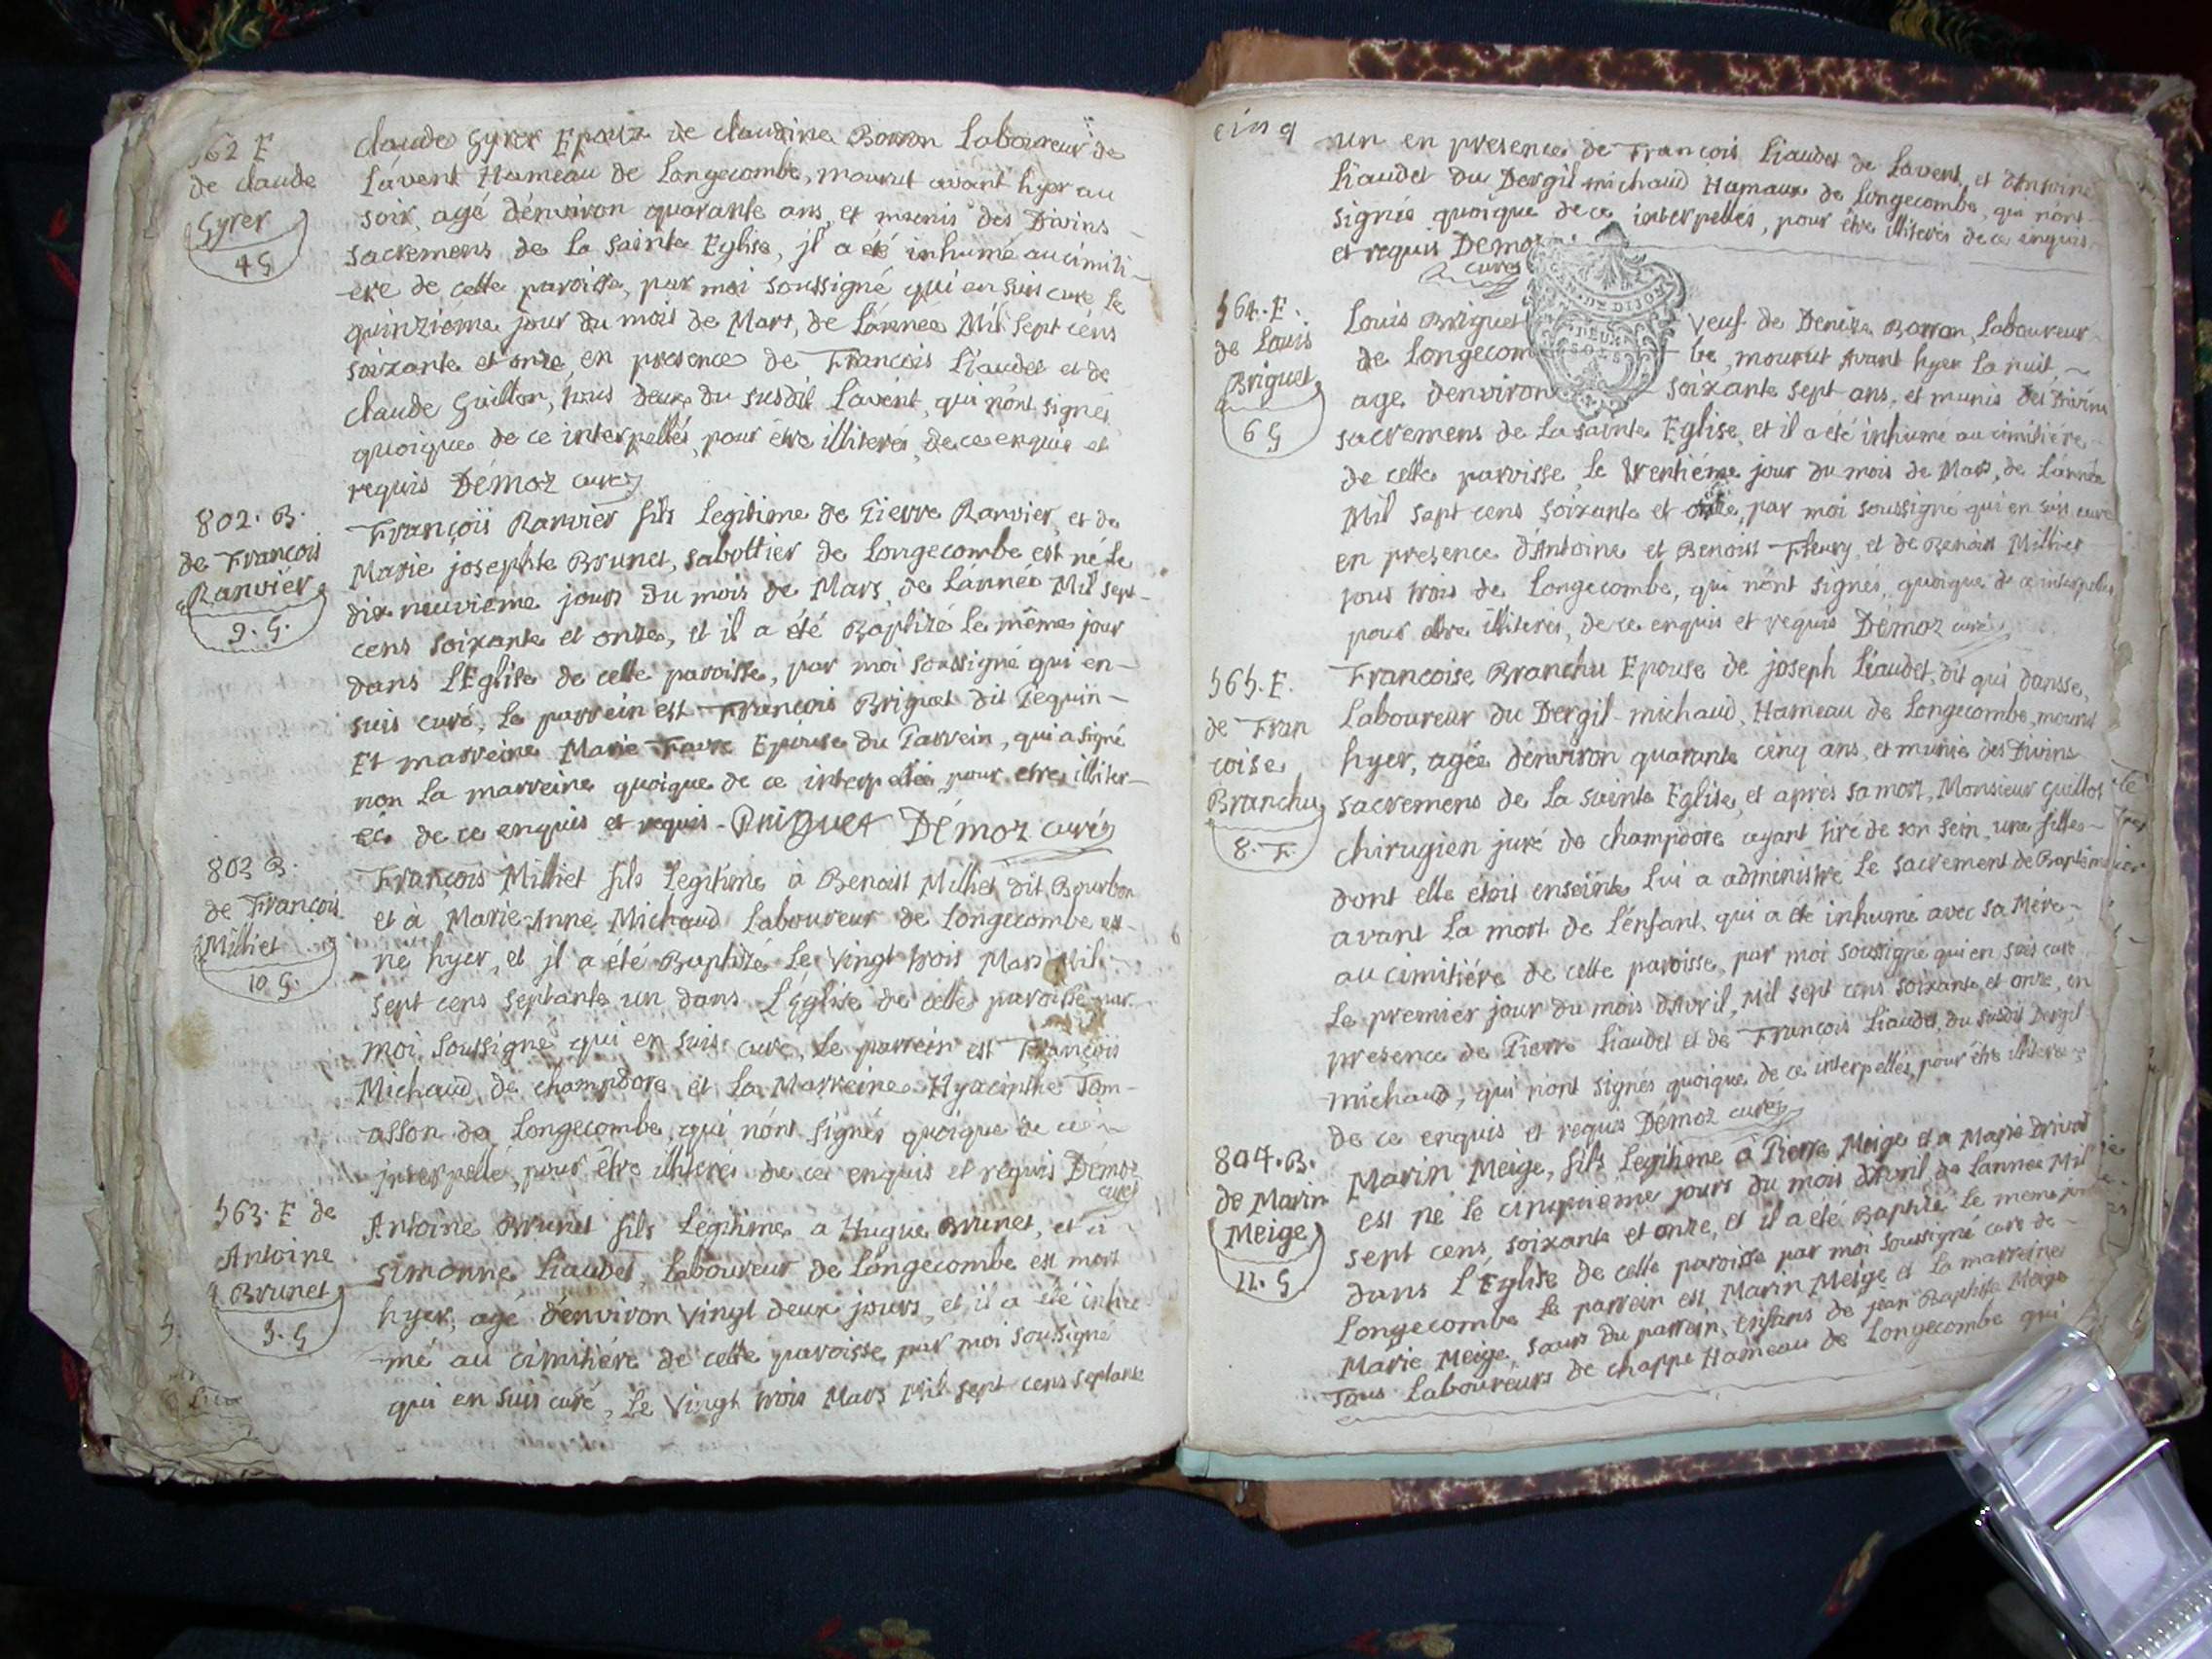 562 E
de Claude
Gyrer
4 G
Claude Gyrer Epoux de claudine Borron Laboureur de
Lavent Hameau de Longecombe, mourut avant hyer au
soir, agé dénviron quarante ans, et munis des Divins
sacremens de la sainte Eglise, jl a été inhumé au cimiti-
-ere de cette paroisse, par moi soussigné qui en suis curé le
quinzieme jour du mois de Mars, de Lánnée Mil sept céns
soixante et onze, en presence de François Liaudet et de
claude Guillon, tous deux du susdit Lavent, qui nónt signés
quoique de ce interpellés, pour étre illiterés, de ce enquis et
requis Démoz curé
802. B.
de François
Ranviér
9. G.
François Ranvier fils Legitime de Pierre Ranvier, et de
Marie josephte Brunet, sabottier de Longecombe est né Le
dix neuvieme jours du mois de Mars, de Lánnée Mil sept-
cens soixante et onze, et il a été Baptizé Le même jour
dans LEglise de cette paroisse, par moi soussigné qui en-
suis curé, Le parrein est François Briguet dit Pequin-
Et marreine Marie Favre Epouse du Parrein, qui a signé
non La marreine quoique de ce interpelée, pour etre illiter-
ée de ce enquis et requis - Briguet Démoz curé
803 B.
de François
Milliet
10 G.
François Milliet fils Legitime à Benoist Milliet dit Bourbon
et à Marie-Anne Michaud Laboureur de Longecombe est
né hyer, et jl a été Baptizé Le vingt trois Mars Mil
sept cens septante un dans LEglise de cette paroisse par
moi soussigné qui en suis curé, Le parrein est François
Michaud de champdore et La Marreine Hyacinthe Tom-
asson de Longecombe, qui nónt signés quoique de ce
interpellé, pour être illiterés de ce enquis et requis Démoz
curé
563. E de
Antoine
Brunet
5. G
Antoine Brunet fils Légitime a Hugue Brunet, et à
simonne Liaudet, Laboureur de Longecombe est mort
hyer, agé dénviron vingt deux jours, et il a été inhu
-mé au cimitiére de cette paroisse par moi soussigné
qui en suis curé, Le vingt trois Mars Mil sept cens septante
cinq
un en presence de François Liaudet de Lavent, et dAntoine
Liaudet du Dergil michaud Hamaux de Longecombe, qui nónt
signés quoique de ce interpellés, pour étre illiterés de ce enquis
et requis Démoz
curé
GEN. DE DIJON
DEUX
SOLS
564. E.
de Louis
Briguet
6 G
Louis Briguet veuf de Deniza Borron, Laboureur
de Longecombe, mourut Avant hyer La nuit,
age denviron soixante sept ans, et munis des Divins
sacremens de La sainte Eglise, et il a été inhumé au cimitiére
de cette paroisse, le trentiéme jour du mois de Mars, de Lánnée
Mil sept cens soixante et onze, par moi soussigné qui en suis curé
en presence dAntoine et Benoist Fleury, et de Benoist Millier
tous trois de Longecombe, qui nónt signés, quoique de ce interpellés
pour etre illiterés, de ce enquis et requis Démoz curé
565. E.
de Fran
coise
Branchu
8. F.
Francoise Branchu Epouse de joseph Liaudet, dit qui dansse,
Laboureur du Dergil-michaud, Hameau de Longecombe, mourut
hyer, agée dénviron quarante cinq ans, et munie des Divins
sacremens de La sainte Eglise, et aprés sa mort, Monsieur Guillot
chirugien juré de champdore ayant tiré de son sein une fille
dont elle étoit enseinte, Lui a administré Le sacrement de Baptéme
avant La mort de Lénfant, qui a été inhumé avec sa Mére
au cimitiére de cette paroisse, par moi soussigné qui en suis curé
Le premier jour du mois dAvril, Mil sept cens soixante et onze, en
presence de Pierre Liaudet et de François Liaudet, du susdit Dergil
michaud, qui nónt signés quoique de ce interpellés, pour étre illiteres
de ce enquis et requis Démoz curé
804. B.
de Marin
Meige
11. G
Marin Meige, fils Legitime à Pierre Meige et a Marie Drivat
est né le cinquieme jours du mois dAvril, de Lannée Mil
sept cens, soixante et onze, et il a été Baptizé le meme jour
dans LEglise de cette paroisse par moi soussigné curé de
Longecombe Le parrein est Marin Meige et La marreine
Marie Meige, sœur du parrein, enfans de jean Baptiste Meige
Tous Laboureurs de chappe Hameau de Longecombe qui